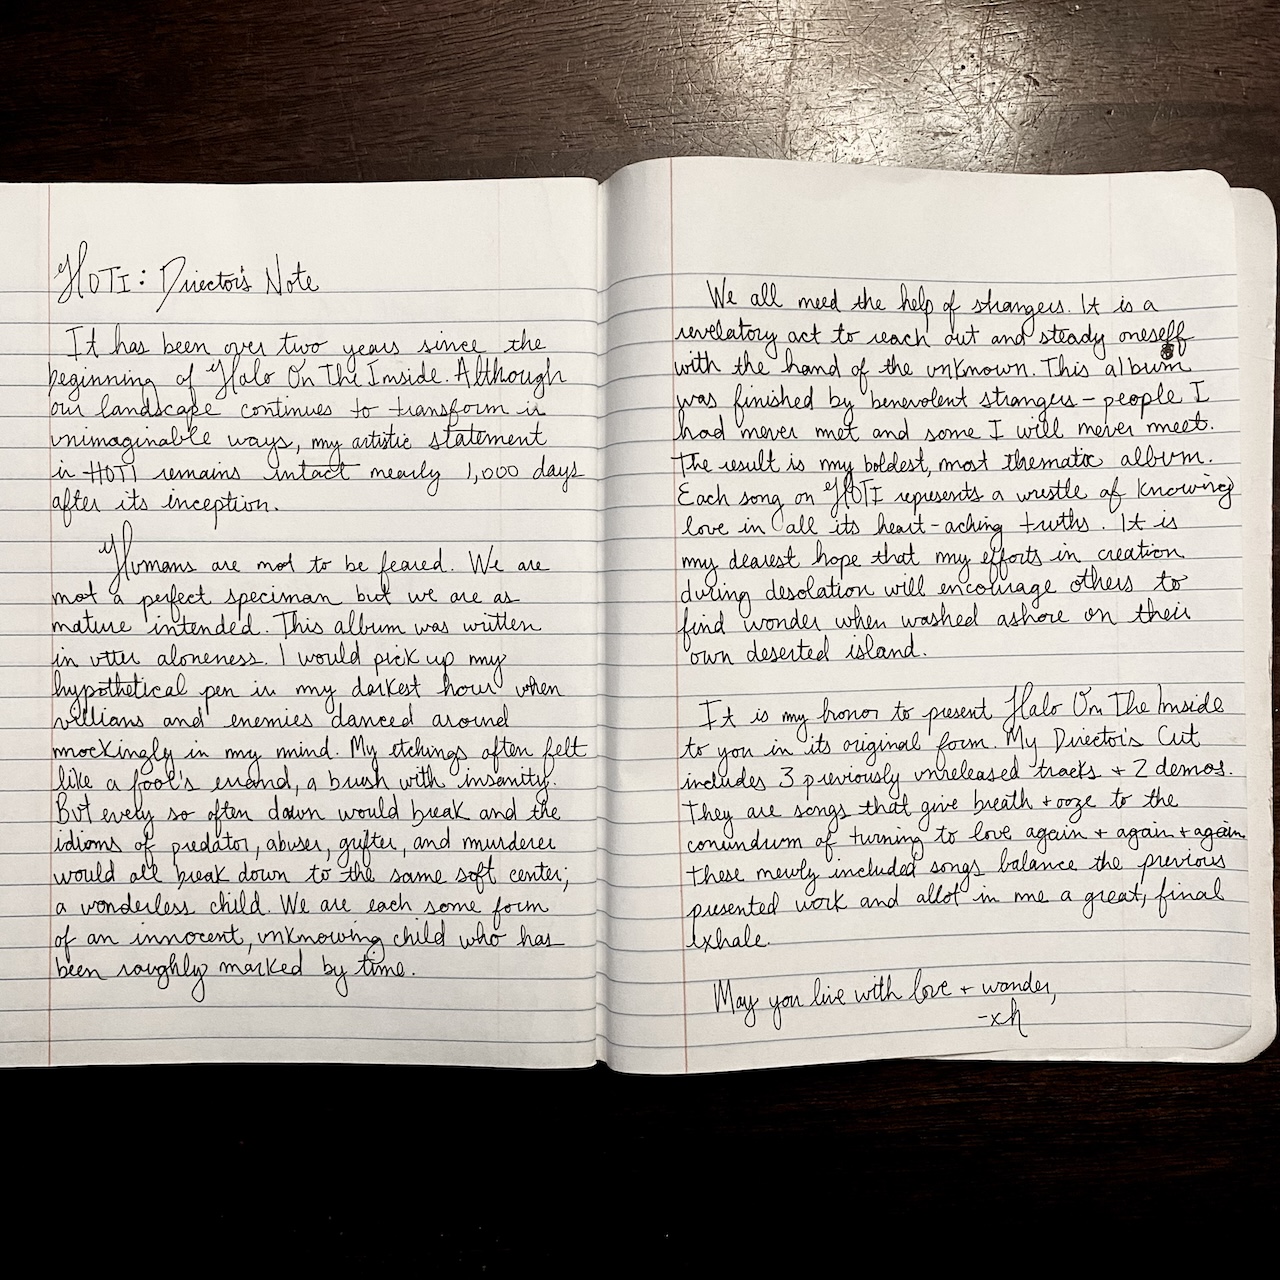 HOTI: Director's Note
It has been over two years since the
beginning of Halo On The Inside. Although
our landscape continues to transform in
unimaginable ways, my artistic statement
in HOTI remains intact nearly 1,000 days
after its inception.
Humans are not to be feared. We are
not a perfect speciman but we are as
nature intended. This album was written
in utter aloneness. I would pick up my
hypothetical pen in my darkest hour when
villians and enemies danced around
mockingly in my mind. My etchings often felt
like a fool's errand, a brush with insanity.
But every so often dawn would break and the
idioms of predator, abuser, grifter, and murderer
would all break down to the same soft center;
a wonderless child. We are each some form
of an innocent, unknowing child who has
been roughly marked by time.
We all need the help of strangers. It is a
revelatory act to reach out and steady oneself
with the hand of the unknown. This album
was finished by benevolent strangers - people I
had never met and some I will never meet.
The result is my boldest, most thematic album.
Each song on HOTI represents a wrestle of knowing
love in all its heart-aching truths. It is
my dearest hope that my efforts in creation
during desolation will encourage others to
find wonder when washed ashore on their
own deserted island.
It is my honor to present Halo On The Inside
to you in its original form. My Director's Cut
includes 3 previously unreleased tracks + 2 demos.
They are songs that give breath + ooze to the
conundrum of turning to love again + again + again.
These newly included songs balance the previous
presented work and allot in me a great, final
exhale.
May you live with love + wonder,
-xh